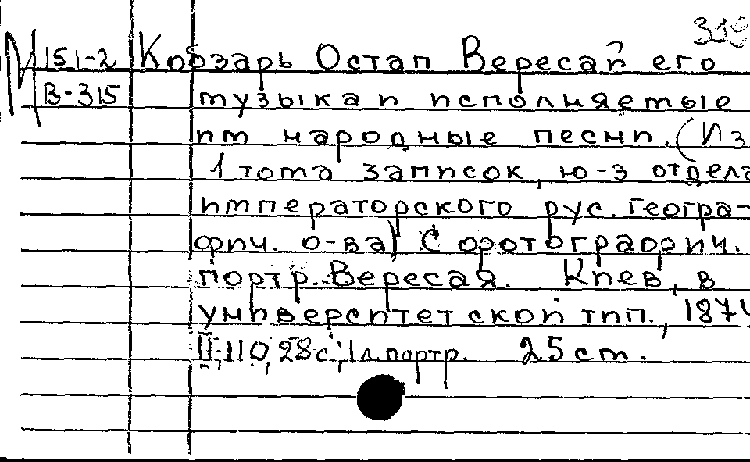 319
М 151-2 Кобзарь Остап Вересай его
В-315 музыка и исполняемые
им народные песни. (Из
1 тома записок, ю-з отдела
императорского рус. геогра-
фич. о-ва) С фотографич.
портр. Вересая. Киев, в
университетской тип., 1874
II, 110, 28 с., 1 л. портр. 25 cm.